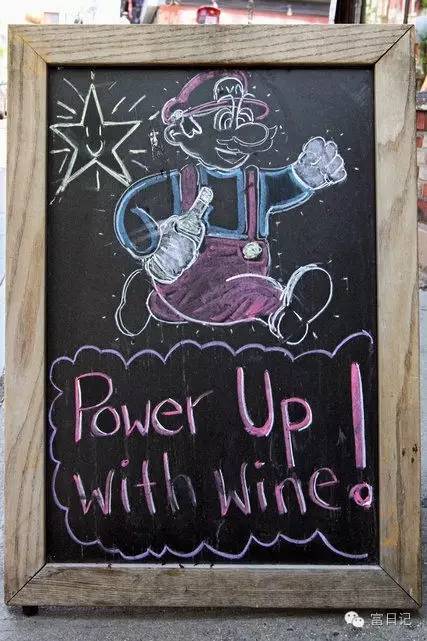 Power Up
with Wine!
富日记